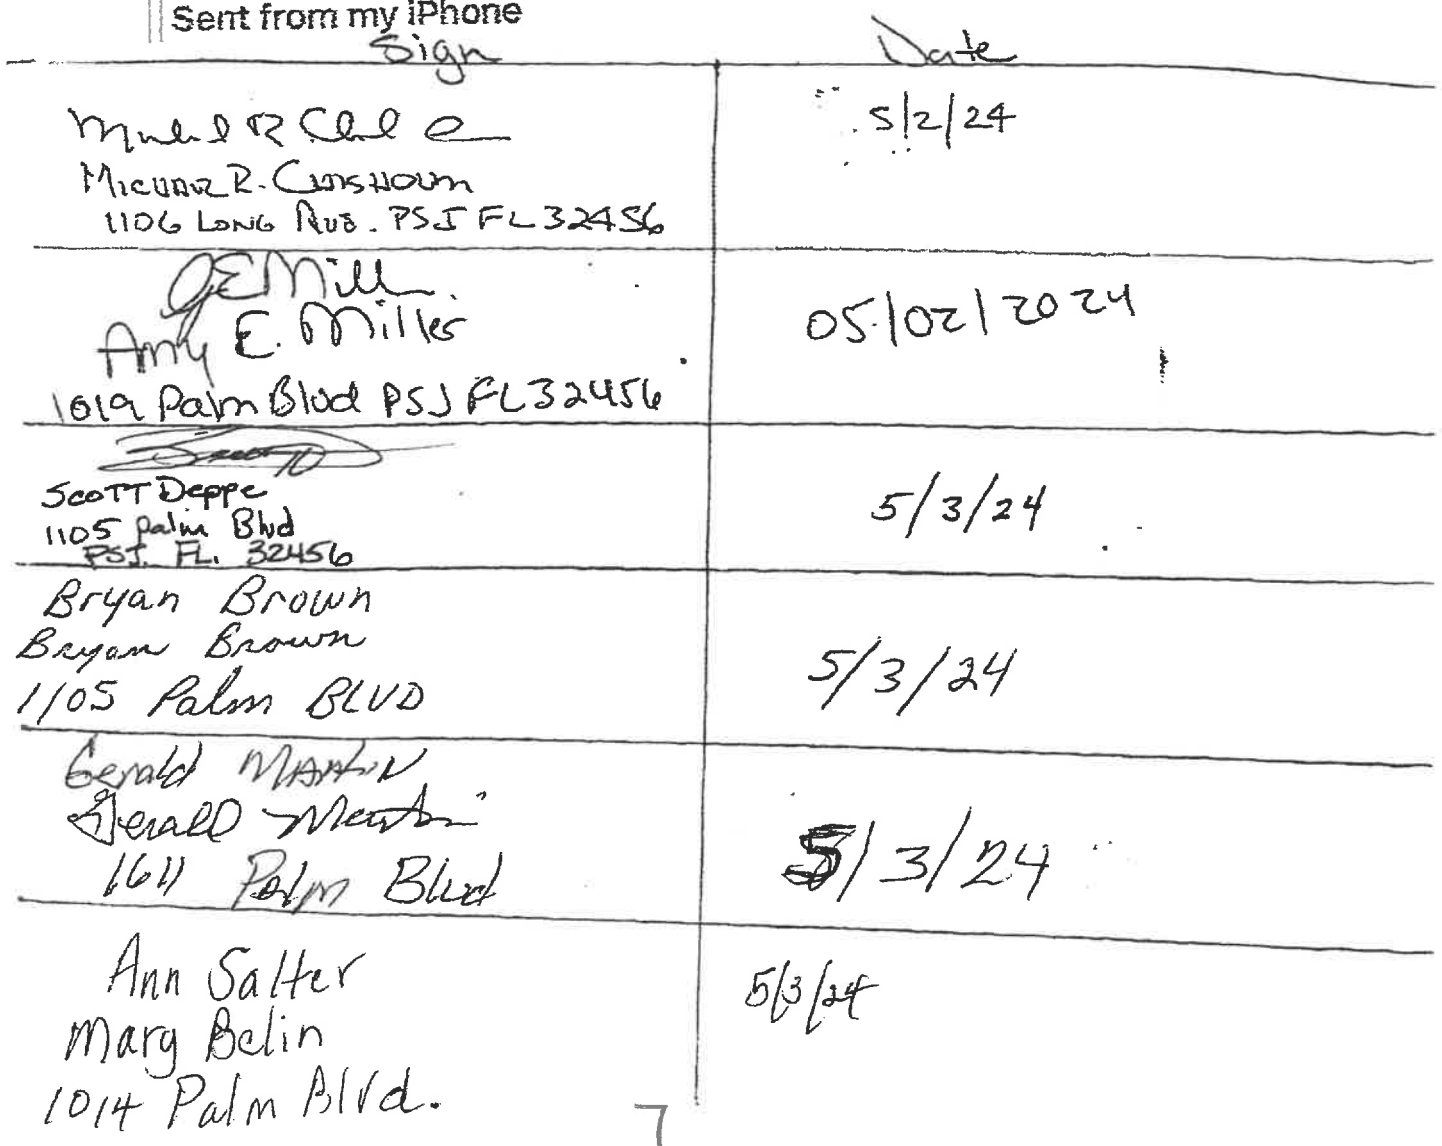 Sent from my iPhone
Sign Date
5/2/24
Michael R.
1106 LONG AVE. PSJ FL 32456
Amy E. Miller
05/02/2024
1019 Palm Blvd PSJ FL 32456
SCOTT Deppe
1105 palm Blvd
PSJ. FL. 32456
5/3/24
Bryan Brown
Bryan Brown
1105 Palm BLVD
5/3/24
Gerald MARtiN
Gerald Martin
1611 Palm Blvd
5/3/24
Ann Salter
Mary Belin
1014 Palm Blvd.
5/3/24
7